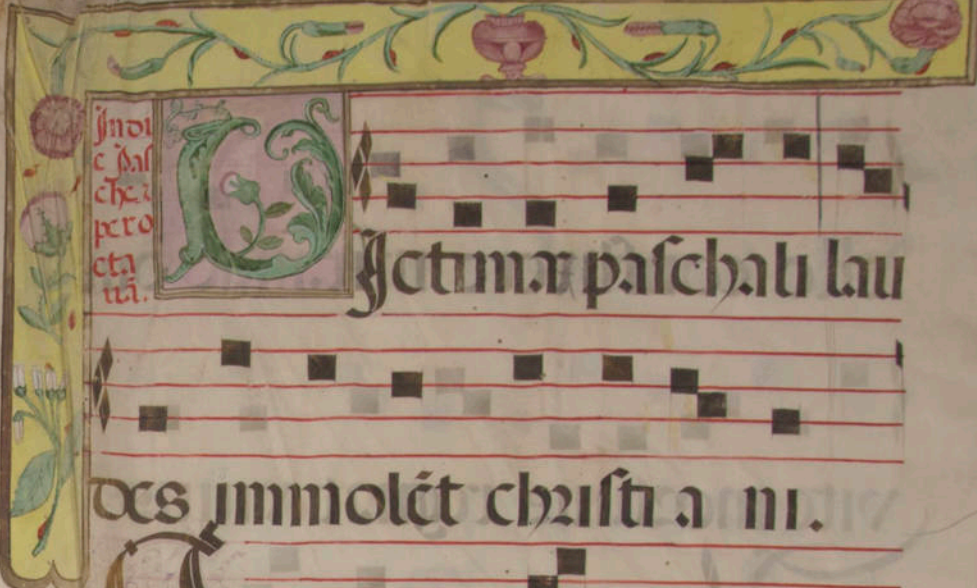 In di
e Pas
che. &
per o
cta
uā.
VIctimæ paschali lau
des immolēt christi a ni.